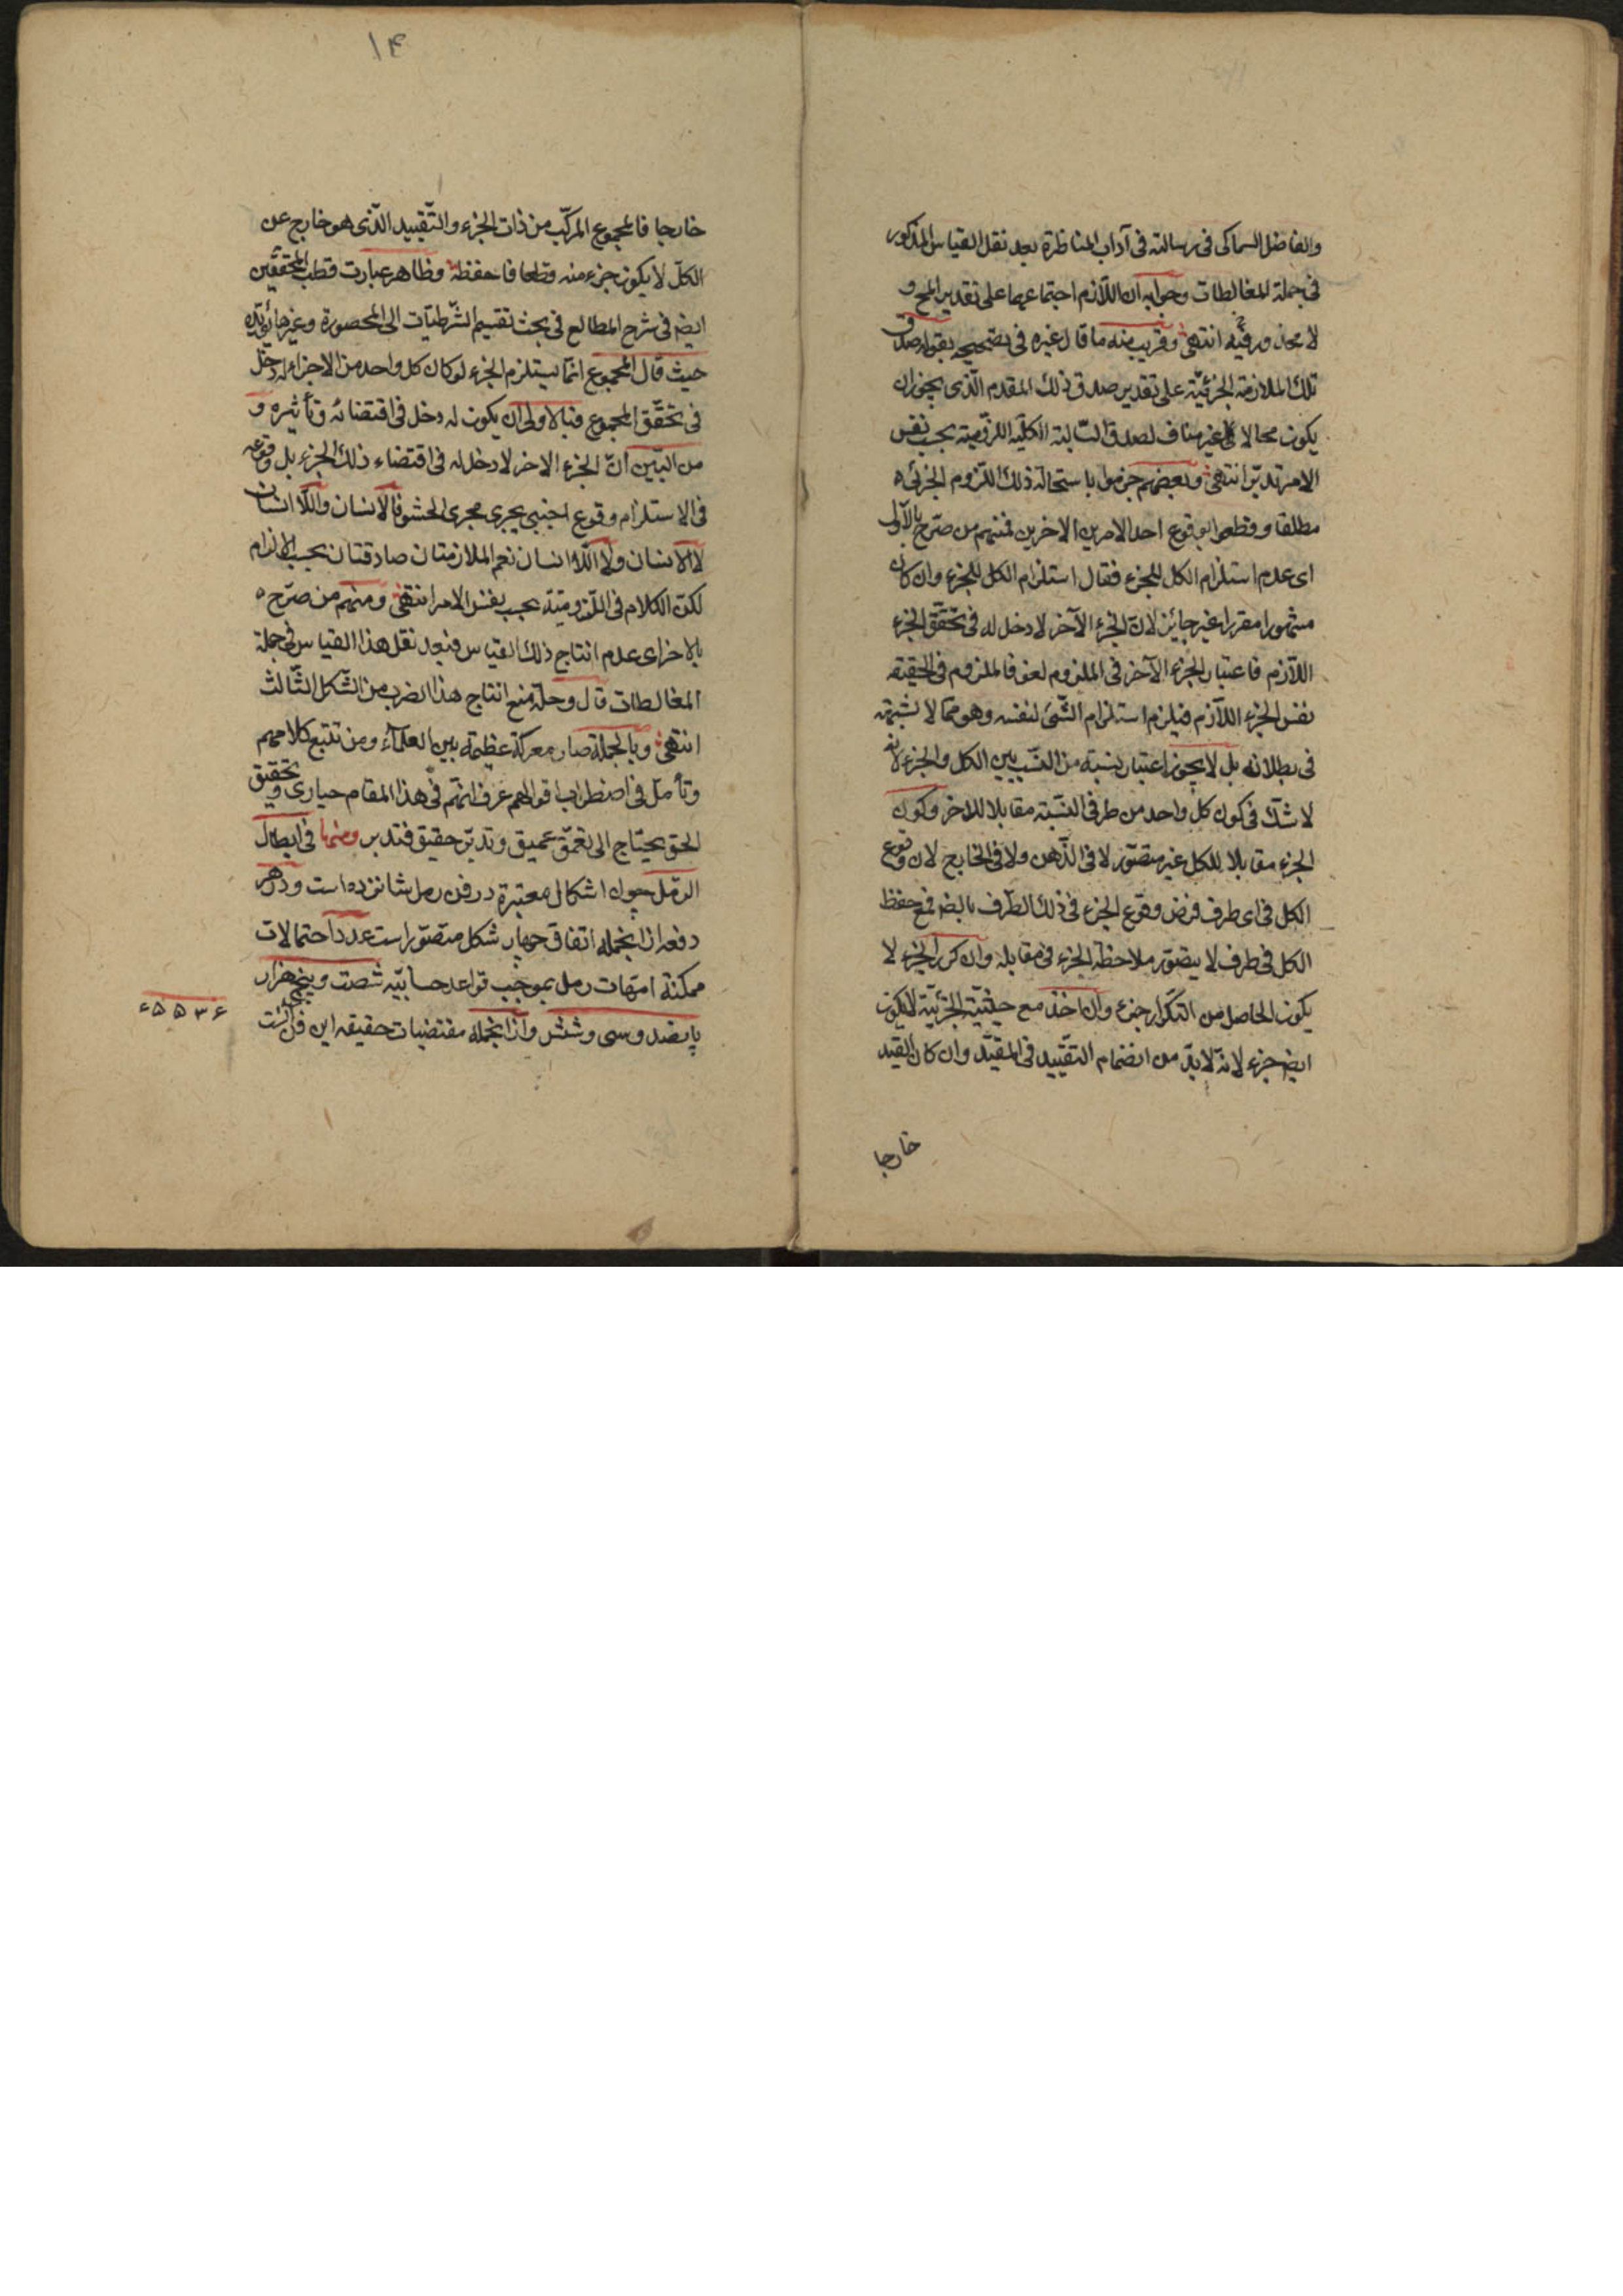 والفاضل السماکی فی رسالته فی آداب المناظرة بعد نقل القیاس المذکور
فی جملة المغالطات وجوابه ان اللازم اجتماعهما علی تقدیر المح و
لا محذور فیه انتهی وقریب منه ما قال غیره فی تصحیحه بقوله صدق
تلک الملازمة الجزئیة علی تقدیر صدق ذلک المقدم الذی یجوز ان
یکون محالا غیر مناف لصدق السالبة الکلیة اللزومیة بحسب نفس
الامر تدبر انتهی وبعضهم جزموا باستحالة ذلک اللزوم الجزئی
مطلقا وقطعوا بوقوع احد الامرین الاخرین فمنهم من صرح بالاول
ای عدم استلزام الکل للجزء فقال استلزام الکل للجزء وان کان
مشهورا مقررا غیر جائز لان الجزء الآخر لا دخل له فی تحقق الجزء
اللازم فاعتبار الجزء الآخر فی الملزوم لغو فالملزوم فی الحقیقة
نفس الجزء اللازم فیلزم استلزام الشئ لنفسه وهو مما لا شبهة
فی بطلانه بل لا یجوز اعتبار نسبة من النسب بین الکل والجزء لانه
لا شک فی کون کل واحد من طرفی النسبة مقابلا للاخر وکون
الجزء مقابلا للکل غیر متصور لا فی الذهن ولا فی الخارج لان وقوع
الکل فی ای طرف فرض وقوع الجزء فی ذلک الطرف بالضم فمع حفظ
الکل فی طرف لا یتصور ملاحظة الجزء فی مقابله وان کرر الجزء لا
یکون الحاصل من التکرار جزء وان اخذ مع حیثیة الجزئیة لا یکون
ایض جزء لانه لا بد من انضمام التقیید فی المقید وان کان القید
خارجا
۱۴
خارجا فالمجموع المرکب من ذات الجزء والتقیید الذی هو خارج عن
الکل لا یکون جزء منه قطعا فاحفظه وظاهر عبارت قطب المحققین
ایض فی شرح المطالع فی بحث تقسیم الشرطیات الی المحصورة وغیرها یؤیده
حیث قال المجموع انما یستلزم الجزء لو کان کل واحد من الاجزاء له دخل
فی تحقق المجموع فبالاولی ان یکون له دخل فی اقتضائه وتأثیره و
من البین ان الجزء الاخر لا دخل له فی اقتضاء ذلک الجزء بل وقوعه
فی الاستلزام وقوع اجنبی یجری مجری الحشو فالانسان واللا انسان
لا الانسان ولا اللا انسان نعم الملازمتان صادقتان بحسب الالزام
لکن الکلام فی اللزومیة بحسب نفس الامر انتهی ومنهم من صرح
بالاخر ای عدم انتاج ذلک القیاس فبعد نقل هذا القیاس فی جملة
المغالطات قال وحله منع انتاج هذا الضرب من الشکل الثالث
انتهی وبالجملة صار معرکة عظیمة بین العلماء ومن تتبع کلامهم
وتأمل فی اضطراب اقوالهم عرف انهم فی هذا المقام حیاری وتحقیق
الحق یحتاج الی تعمق عمیق وتدبر حقیق فتدبر ومنها فی ابطال
الرمل چون اشکال معتبرة در فن رمل شانزده است ودر هر
دفعه از انجمله اتفاق چهار شکل متصور است عدد احتمالات
ممکنة امهات رمل بموجب قواعد حسابیه شصت وپنج هزار
پانصد وسی وشش وازانجمله مقتضیات حقیقه این فن آنست
۶۵۵۳۶